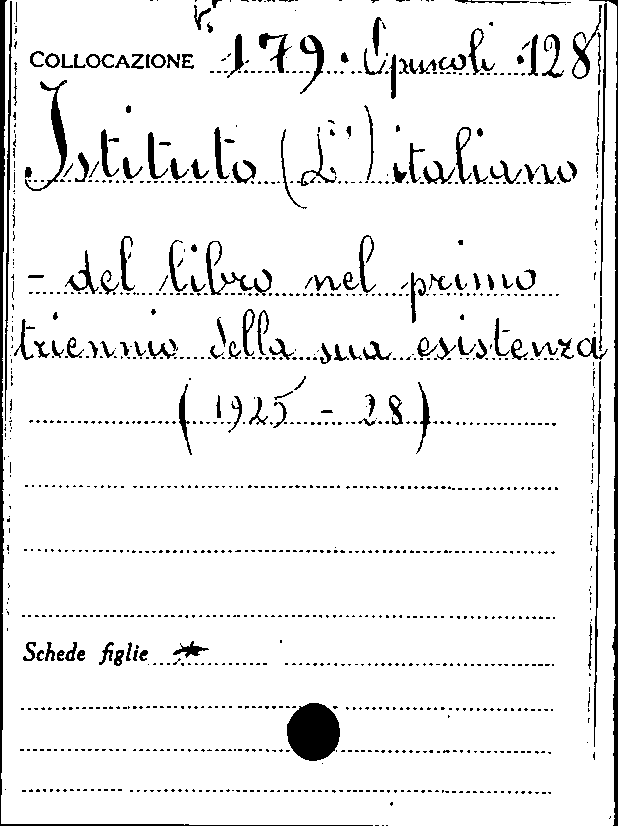 COLLOCAZIONE 179. Opuscoli .128
Istituto (L') italiano
- del libro nel primo
triennio della sua esistenza
(1925 - 28)
Schede figlie